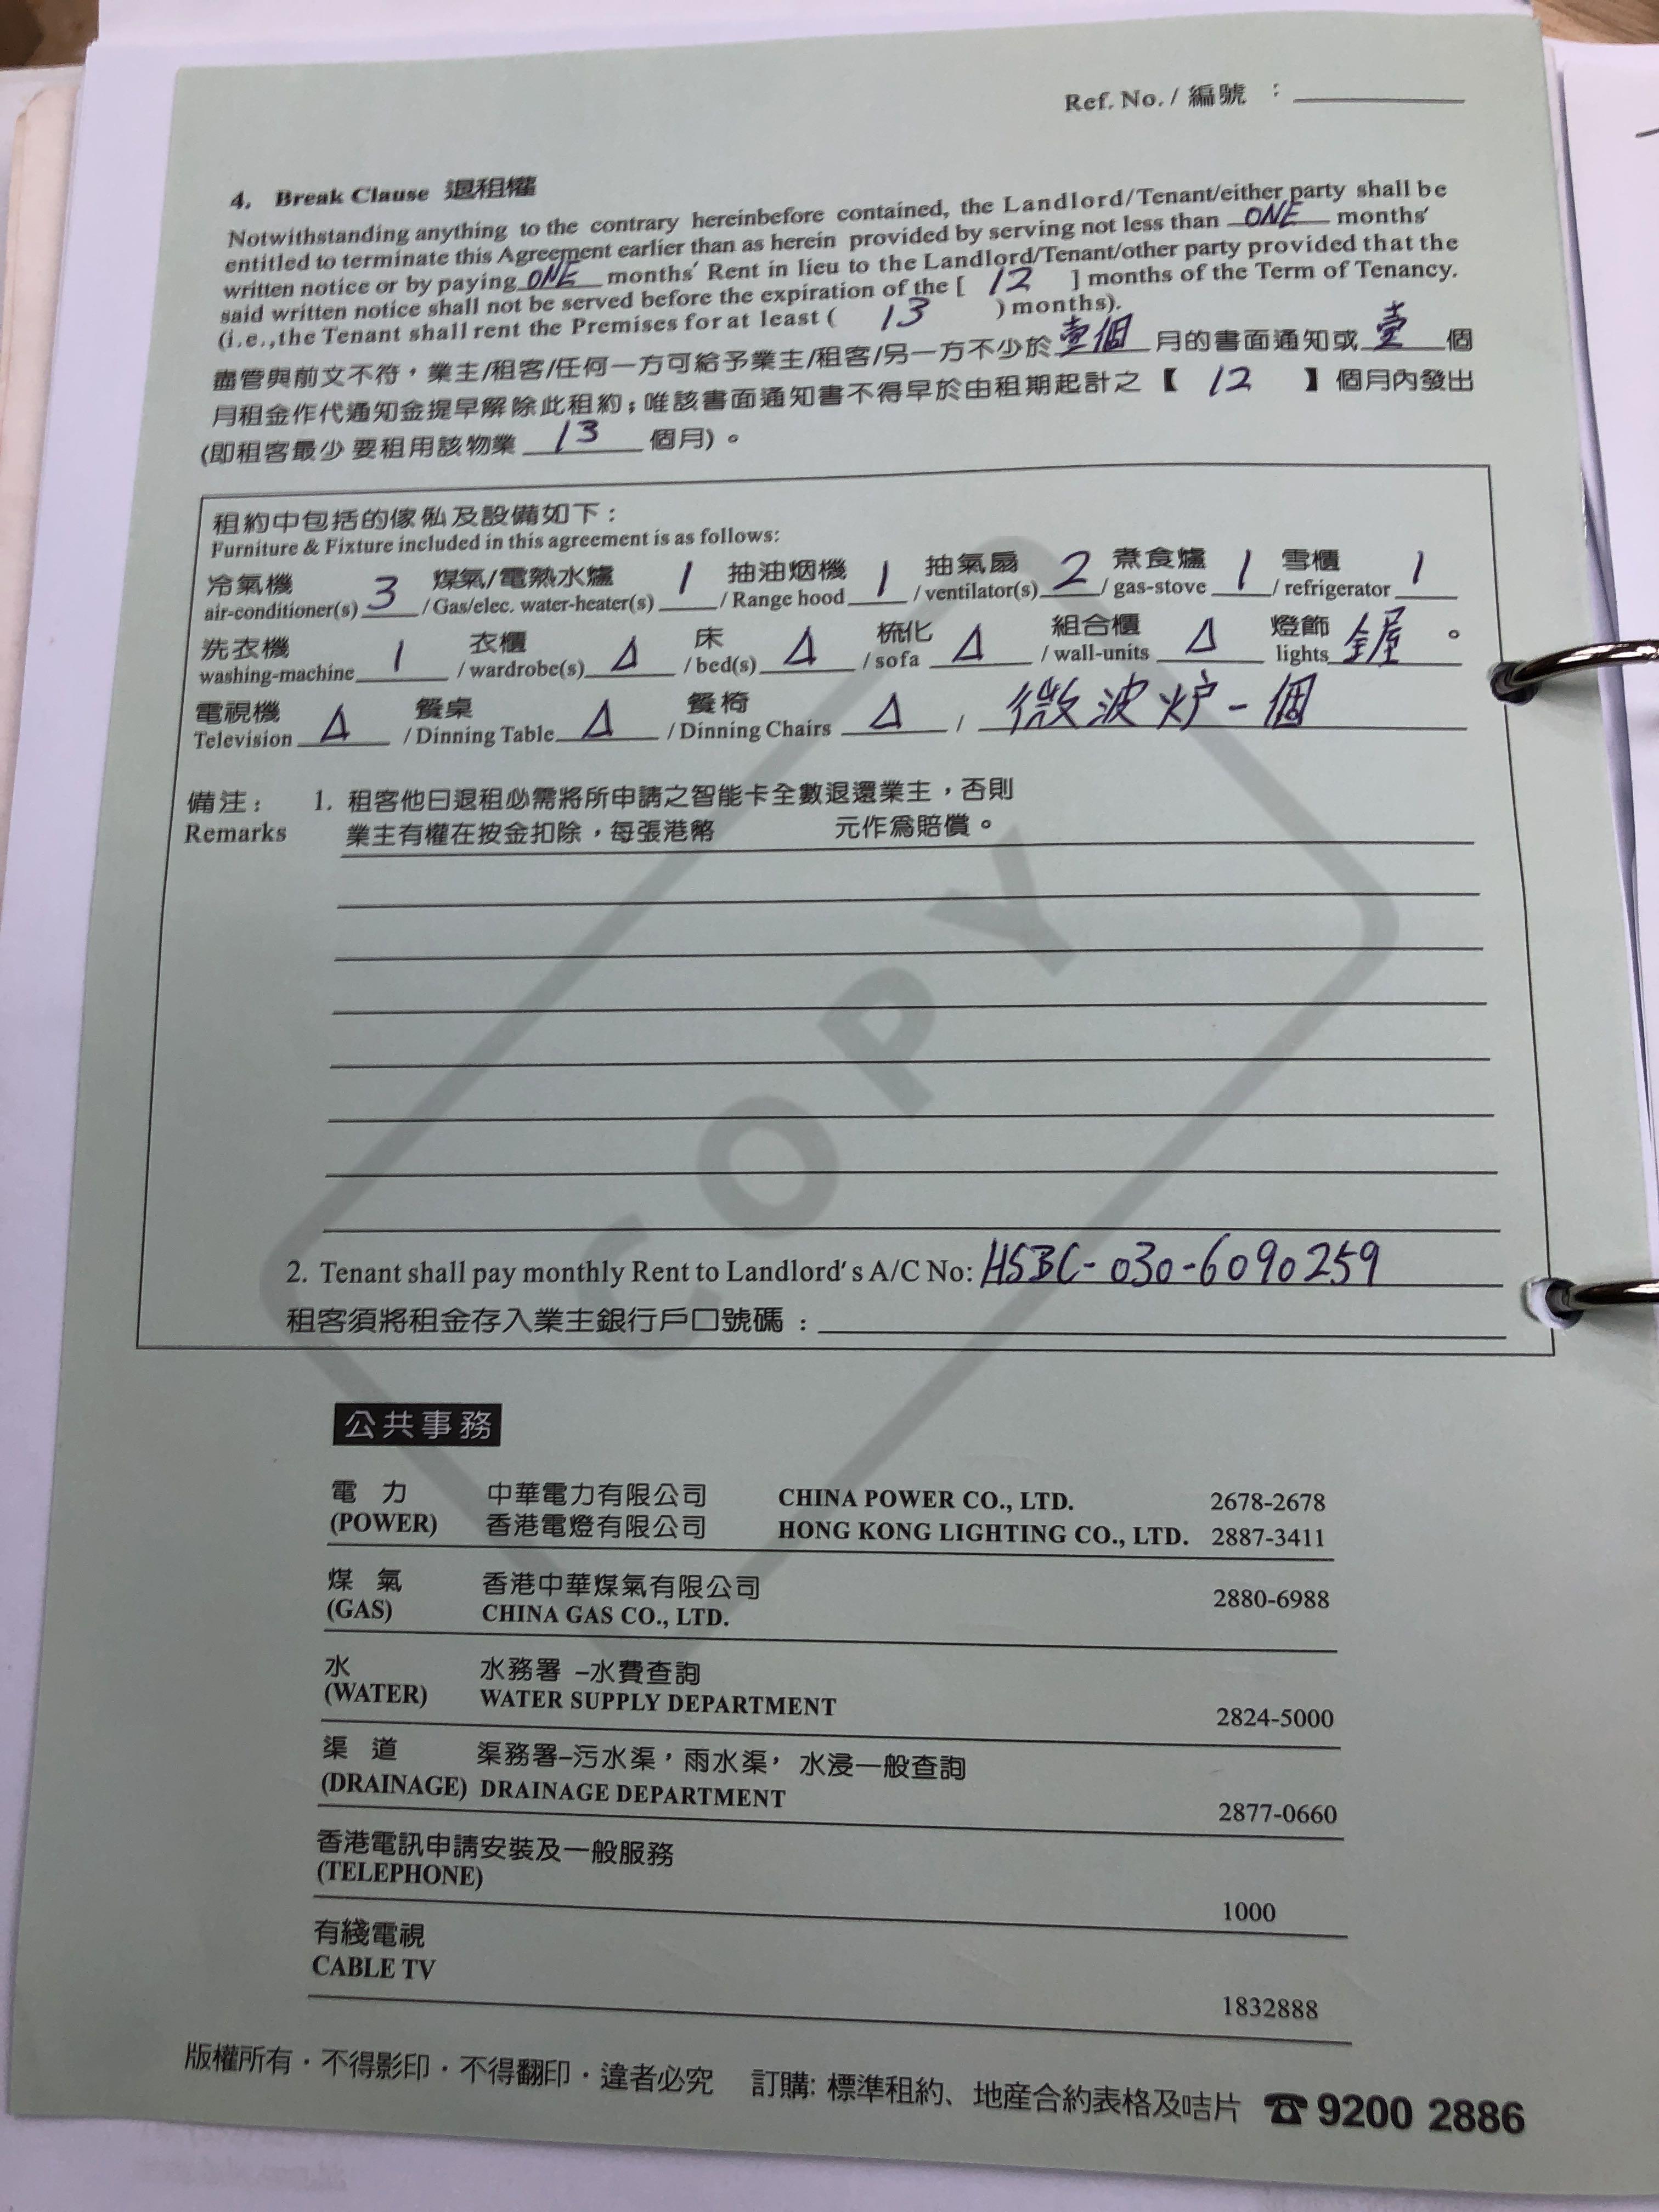 Ref. No. / 編號 :
4. Break Clause 退租權
Notwithstanding anything to the contrary hereinbefore contained, the Landlord/Tenant/either party shall be
entitled to terminate this Agreement earlier than as herein provided by serving not less than ONE months'
written notice or by paying ONE months' Rent in lieu to the Landlord/Tenant/other party provided that the
said written notice shall not be served before the expiration of the [ 12 ] months of the Term of Tenancy.
(i.e.,the Tenant shall rent the Premises for at least ( 13 ) months).
盡管與前文不符，業主/租客/任何一方可給予業主/租客/另一方不少於壹個月的書面通知或壹個
月租金作代通知金提早解除此租約；唯該書面通知書不得早於由租期起計之【 12 】個月內發出
(即租客最少要租用該物業 13 個月)。
租約中包括的傢俬及設備如下：
Furniture & Fixture included in this agreement is as follows:
冷氣機 煤氣/電熱水爐 抽油烟機 抽氣扇 煮食爐 雪櫃
air-conditioner(s) 3 / Gas/elec. water-heater(s) 1 / Range hood 1 / ventilator(s) 2 / gas-stove 1 / refrigerator 1
洗衣機 衣櫃 床 梳化 組合櫃 燈飾
washing-machine 1 / wardrobe(s) Δ / bed(s) Δ / sofa Δ / wall-units Δ lights 全屋 。
電視機 餐桌 餐椅
Television Δ / Dinning Table Δ / Dinning Chairs Δ / 微波炉-個
備注： 1. 租客他日退租必需將所申請之智能卡全數退還業主，否則
Remarks 業主有權在按金扣除，每張港幣 元作為賠償。
COPY
2. Tenant shall pay monthly Rent to Landlord's A/C No: HSBC-030-6090259
租客須將租金存入業主銀行戶口號碼：
公共事務
電 力 中華電力有限公司 CHINA POWER CO., LTD. 2678-2678
(POWER) 香港電燈有限公司 HONG KONG LIGHTING CO., LTD. 2887-3411
煤 氣 香港中華煤氣有限公司 2880-6988
(GAS) CHINA GAS CO., LTD.
水 水務署 –水費查詢
(WATER) WATER SUPPLY DEPARTMENT 2824-5000
渠 道 渠務署–污水渠，雨水渠，水浸一般查詢
(DRAINAGE) DRAINAGE DEPARTMENT 2877-0660
香港電訊申請安裝及一般服務
(TELEPHONE) 1000
有綫電視
CABLE TV 1832888
版權所有．不得影印．不得翻印．違者必究 訂購: 標準租約、地產合約表格及咭片 ☎9200 2886